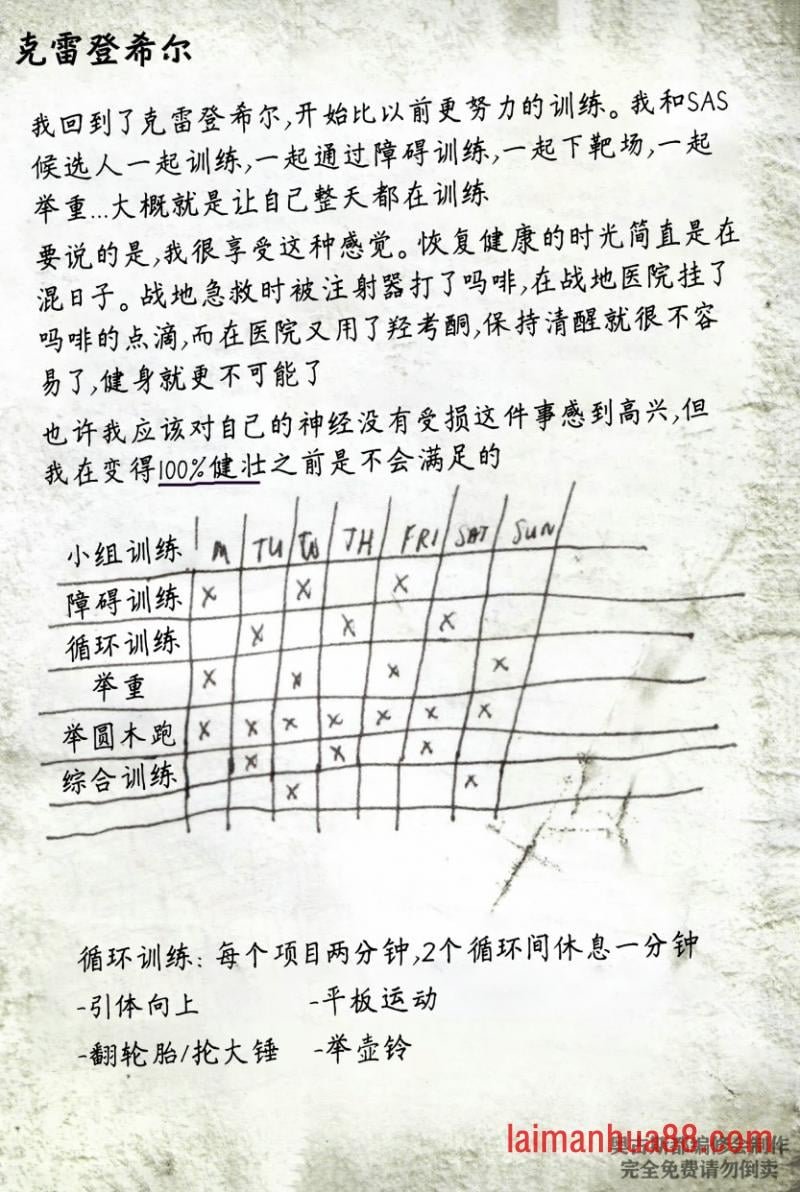 克雷登希尔
我回到了克雷登希尔,开始比以前更努力的训练。我和SAS
候选人一起训练,一起通过障碍训练,一起下靶场,一起
举重...大概就是让自己整天都在训练
要说的是,我很享受这种感觉。恢复健康的时光简直是在
混日子。战地急救时被注射器打了吗啡,在战地医院挂了
吗啡的点滴,而在医院又用了羟考酮,保持清醒就很不容
易了,健身就更不可能了
也许我应该对自己的神经没有受损这件事感到高兴,但
我在变得100%健壮之前是不会满足的
小组训练 M TU W TH FRI SAT SUN
障碍训练 X X X
循环训练 X X X
举重 X X X X
举圆木跑 X X X X X X X
综合训练 X X X
X X
循环训练: 每个项目两分钟,2个循环间休息一分钟
-引体向上 -平板运动
-翻轮胎/抡大锤 -举壶铃
laimanhua88.com
完全免费请勿倒卖